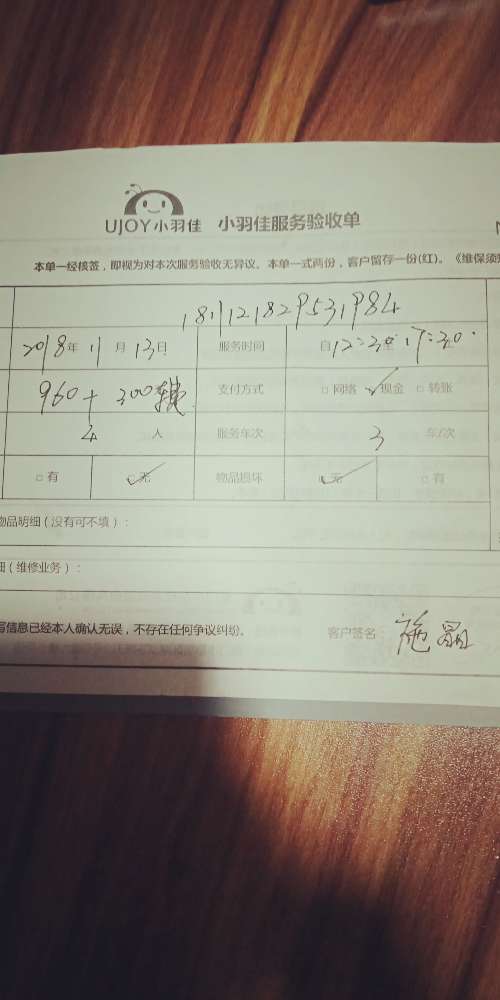 UJOY小羽佳 小羽佳服务验收单
本单一经核签，即视为对本次服务验收无异议。本单一式两份，客户留存一份(红)。《维保须
181121829531984
2018年11月13日 服务时间 自12:30 17:30
960+300 支付方式 □网络 □现金 □转账
4人 服务车次 3车/次
□有 □无 物品损坏 □无 □有
物品明细（没有可不填）：
细（维修业务）：
写信息已经本人确认无误，不存在任何争议纠纷。 客户签名：施